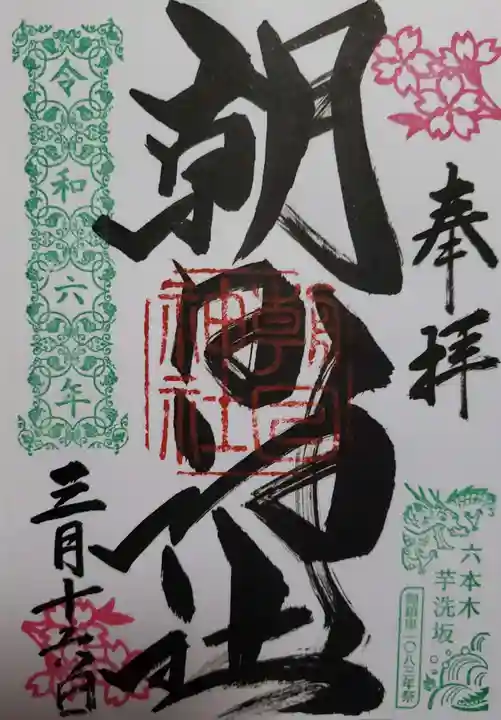 奉拝
六本木
芋洗坂
一〇八三年祭
朝日神社
朝日
神社
令和六年
三月十